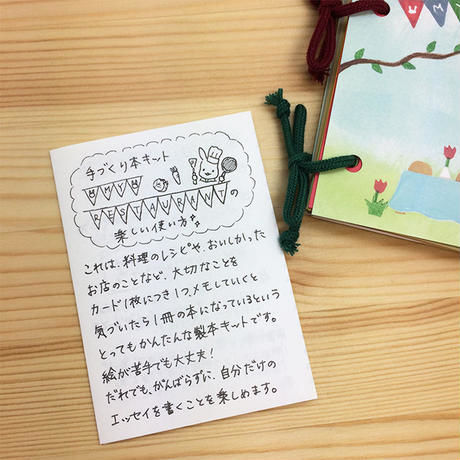 手づくり本キット
MYM
RESTAURANTの
楽しい使い方
これは、料理のレシピや、おいしかった
お店のことなど、大切なことを
カード1枚につき1つメモしていくと
気づいたら1冊の本になっているという
とってもかんたんな製本キットです。
絵が苦手でも大丈夫!
だれでも、がんばらずに、自分だけの
エッセイを書くことを楽しめます。